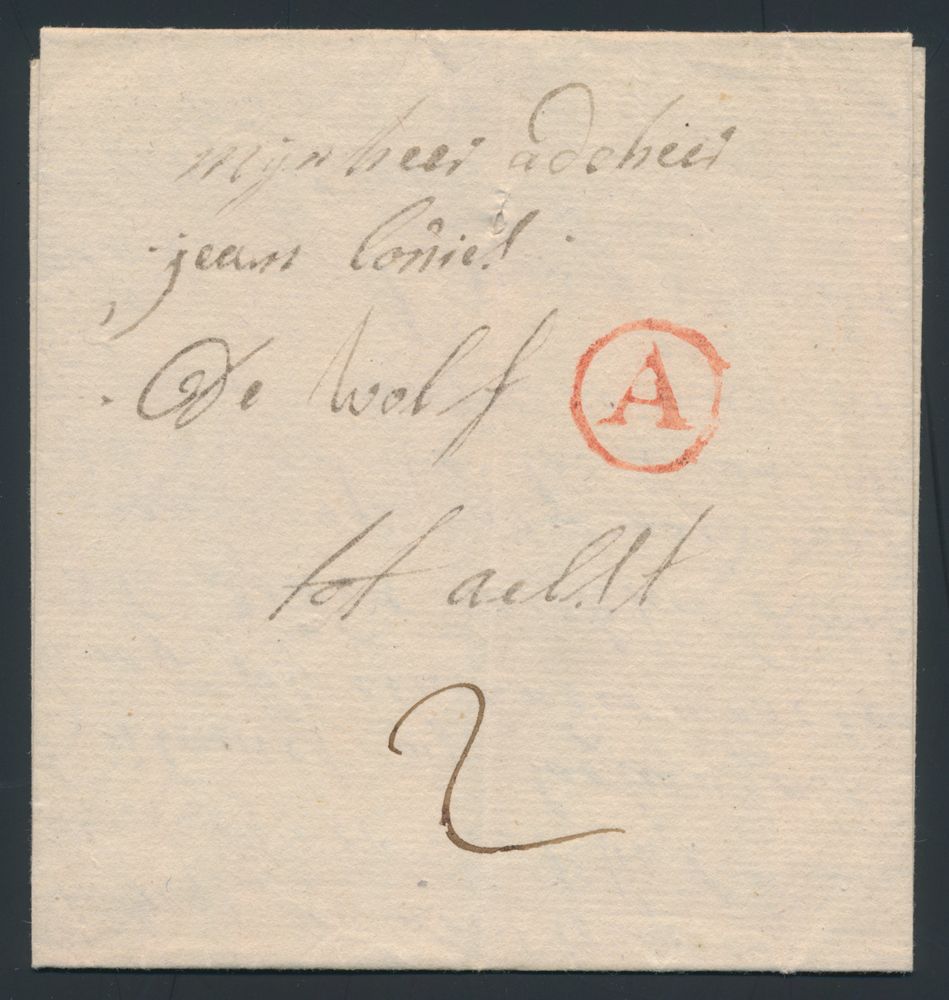 mijnheer adeheer
jean louies
De wolf
A
tot aelstt
2